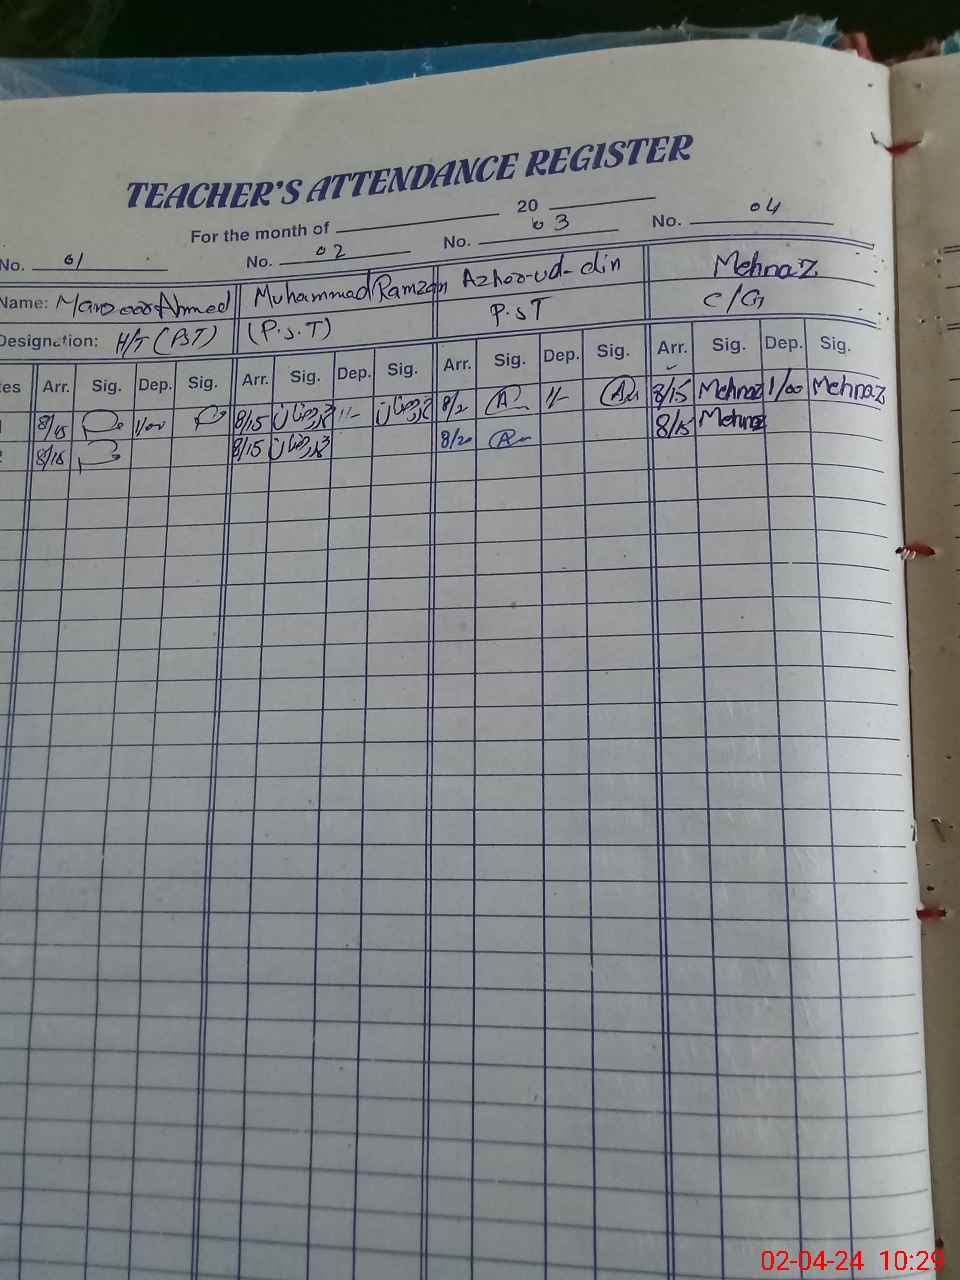 TEACHER'S ATTENDANCE REGISTER
For the month of 20
No. 01 No. 02 No. 03 No. 04
Name: Ahmed Muhammad Ramzan Azhar-ud-din Mehnaz
Designation: H/T (PST) (P.S.T) P.ST C/G
tes Arr. Sig. Dep. Sig. Arr. Sig. Dep. Sig. Arr. Sig. Dep. Sig. Arr. Sig. Dep. Sig.
1 8/15 1/00 8/15 محمد رمضان 1/- محمد رمضان 8/2 1/- 8/15 Mehnaz 1/00 Mehnaz
2 8/15 8/15 محمد رمضان 8/20 8/15 Mehnaz
02-04-24 10:29